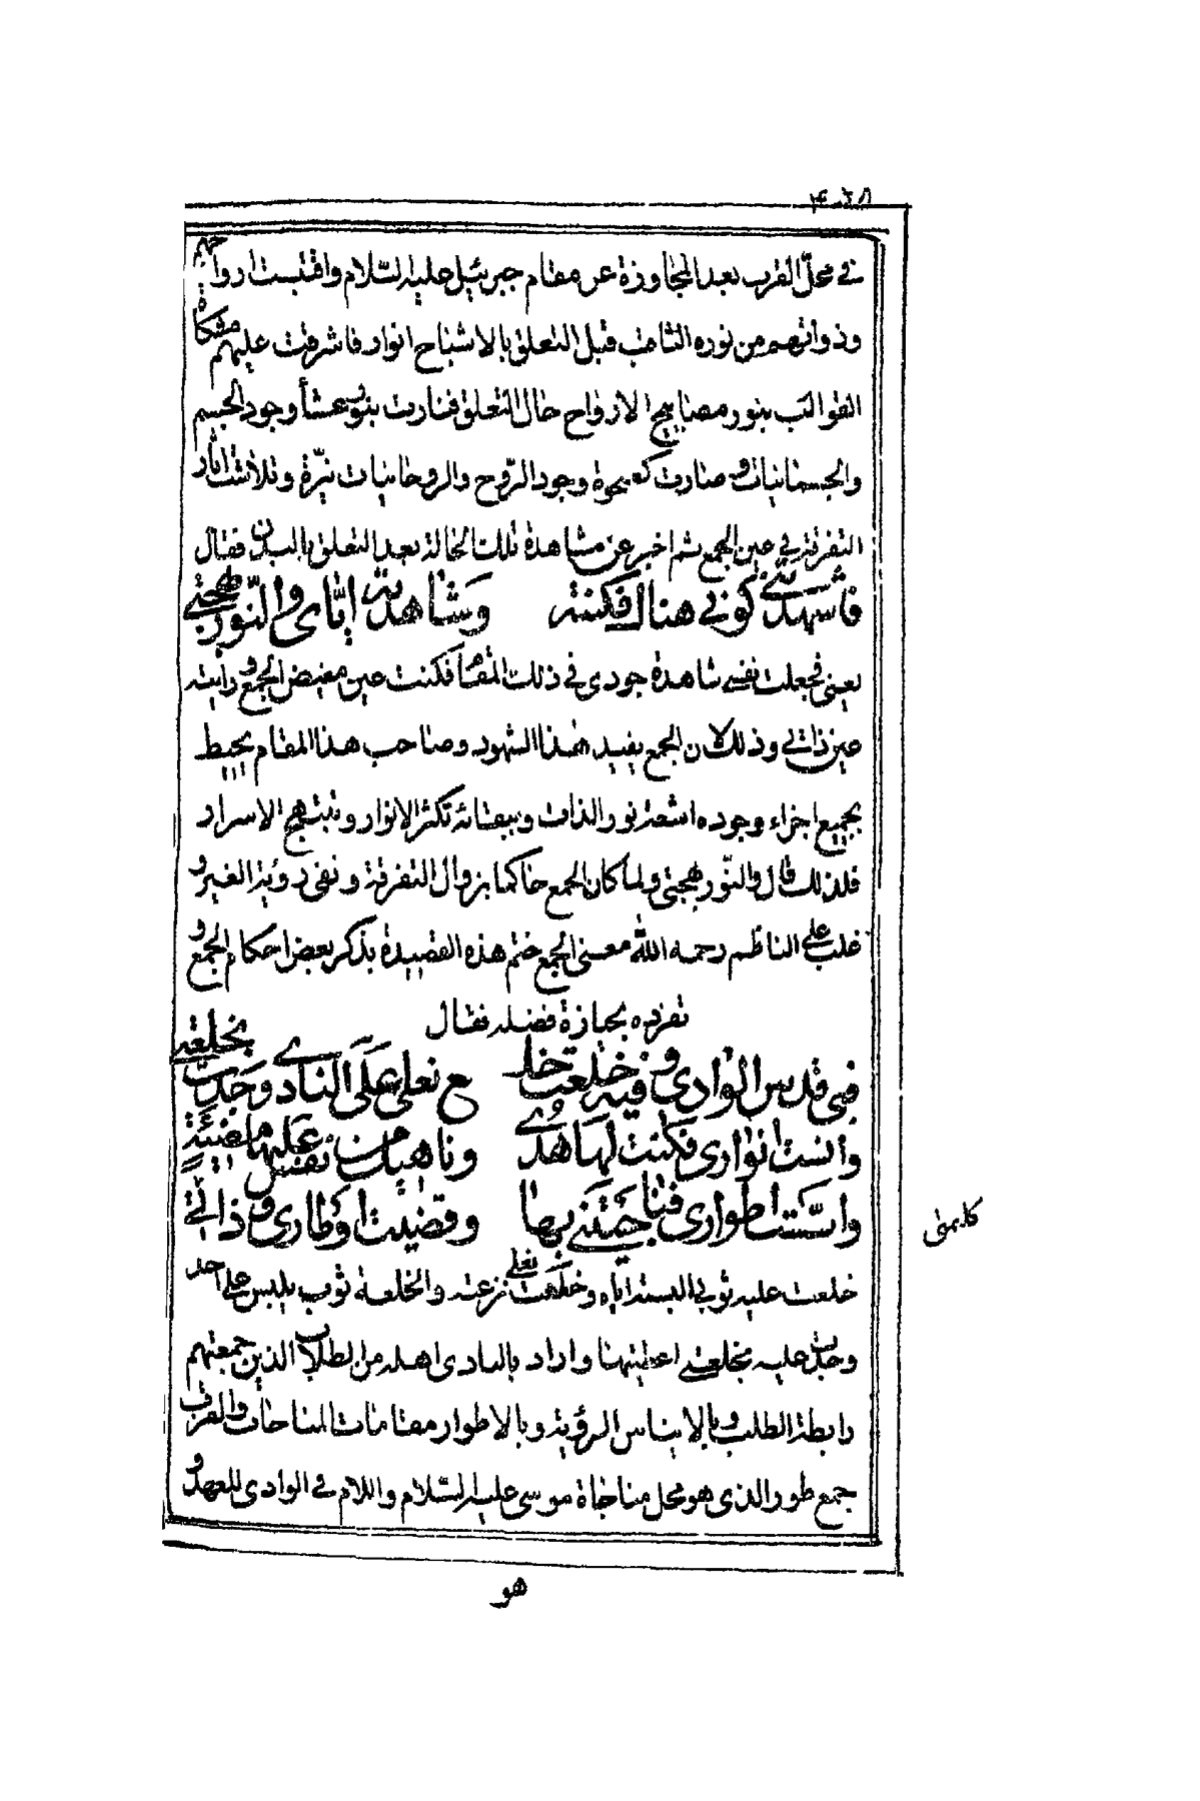 في محلّ القرب بعد المجاوزة عن مقام جبرئيل عليه السّلام واقتبست ارواحهم
وذواتهم من نوره الثاقب قبل التعلق بالاشباح انوار فاشرقت عليهم مشكاة
القوالب بنور مصابيح الارواح حال التعلق فنارت بنور عشا وجود الجسم
والجسمانيات وصارت كه بحوة وجود الرّوح والروحانيات نيّرة وتلاشت اثار
التفرقة في عين الجمع ثم اخبر عن مشاهدة تلك الحالة بعد التعلق بالبدن فقال
فاشهدتني كوني هناك فكنته وشاهدته ايّاي والنّور بهجتي
يعني فجعلت نفسي شاهدة جودى فى ذلك المقام فكنت عين مفيض الجمع ورأيته
عين ذاتي وذلك لان الجمع يفيد هذا الشهود وصاحب هذا المقام يحيط
بجميع اجزاء وجوده اشعة نور الذات وببقائه تكثر الانوار وتبتهج الاسرار
فلذلك قال والنّور بهجتي ولما كان الجمع حاكما بزوال التفرقة ونفى رؤية الغير و
غلب على الناظم رحمه الله معنى الجمع ختم هذه القصيدة بذكر بعض احكام الجمع و
تفرده بحيازة فضله فقال
فبي قدس الوادى وفيه خلعت خلع نعلى على النادي وجدت بخلعتي
وآنست انوارى فكنت لها هدى وناهيك من نفس عليها مضيئة
واسّست اطوارى فناجيتني بها وقضيت اوطارى وذاتي
كليمتى
خلعت عليه ثوبي البسته اياه وخلعت نعلي نزعته والخلعة ثوب يلبس على احد
وجدت عليه بخلعتي اعطيتها واراد بالنادى اهله من الطلاب الذين جمعتهم
رابطة الطلب وبالايناس الرؤية وبالاطوار مقامات المناجات والقرب
جمع طور الذى هو محل مناجاة موسى عليه السّلام واللام في الوادى للعهد و
هو